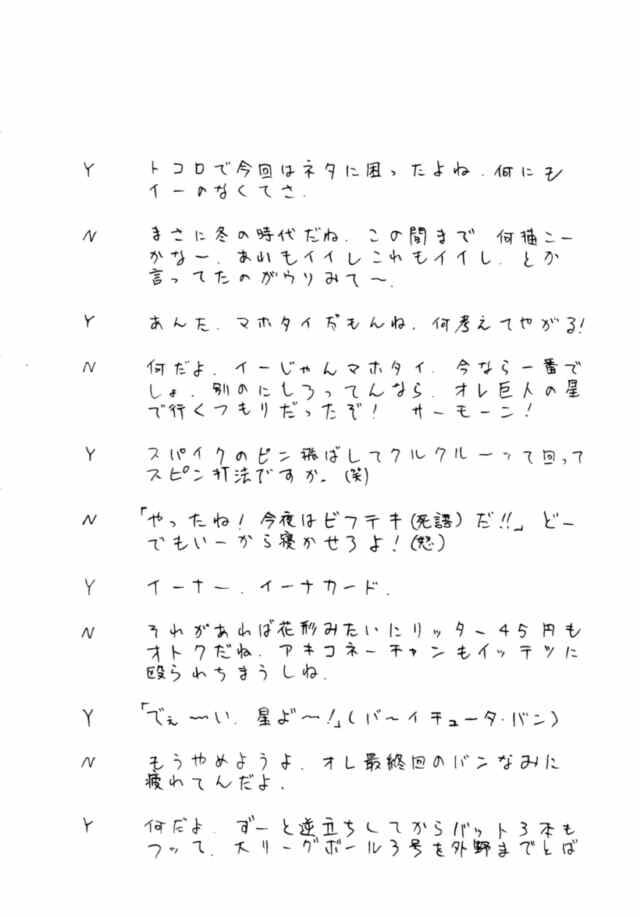 Y トコロで今回はネタに困ったよね.何にも
イーのなくてさ.
N まさに冬の時代だね.この間まで 何描こー
かな〜.あれもイイしこれもイイし.とか
言ってたのがウリみて〜.
Y あんた.マホタイだもんね.何考えてやがる!
N 何だよ.イーじゃんマホタイ.今なら一番で
しょ.別のにしろってんなら.オレ巨人の星
で行くつもりだったぞ! サーモーン!
Y スパイクのピン飛ばしてクルクルーって回って
スピン打法ですか。(笑)
N 「やったね!今夜はビフテキ(死語)だ!!」どー
でもいーから寝かせろよ!(怒)
Y イーナー.イーナカード.
N それがあれば花形みたいにリッター45円も
オトクだね.アキコネーチャンもイッテツに
殴られちまうしね.
Y 「でぇ〜い.星よ〜!」(バ〜イチュータ・バン)
N もうやめようよ.オレ最終回のバンなみに
疲れてんだよ.
Y 何だよ.ずーと逆立ちしてからバット3本も
フッて.大リーグボール3号を外野までとば